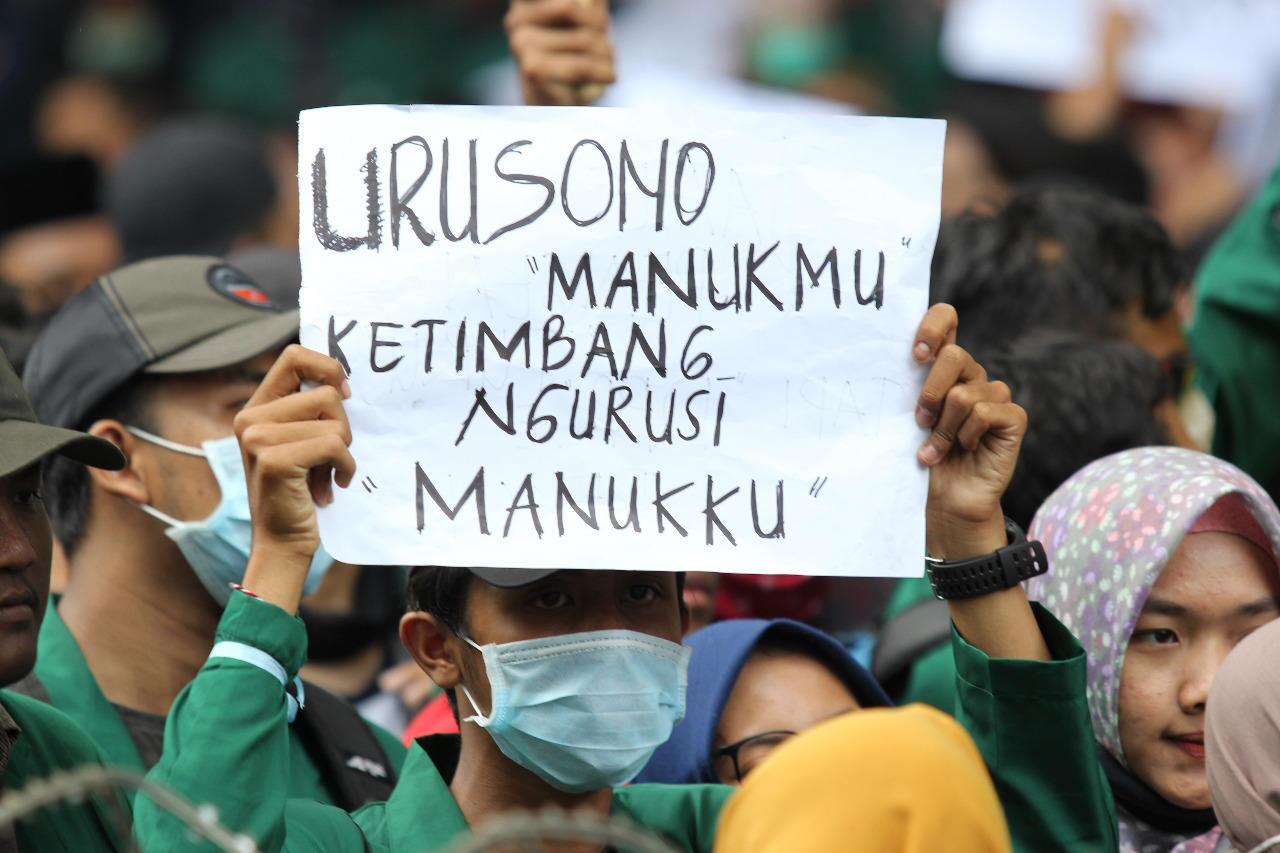 URUSONO
"MANUKMU"
KETIMBANG
NGURUSI
"MANUKKU"